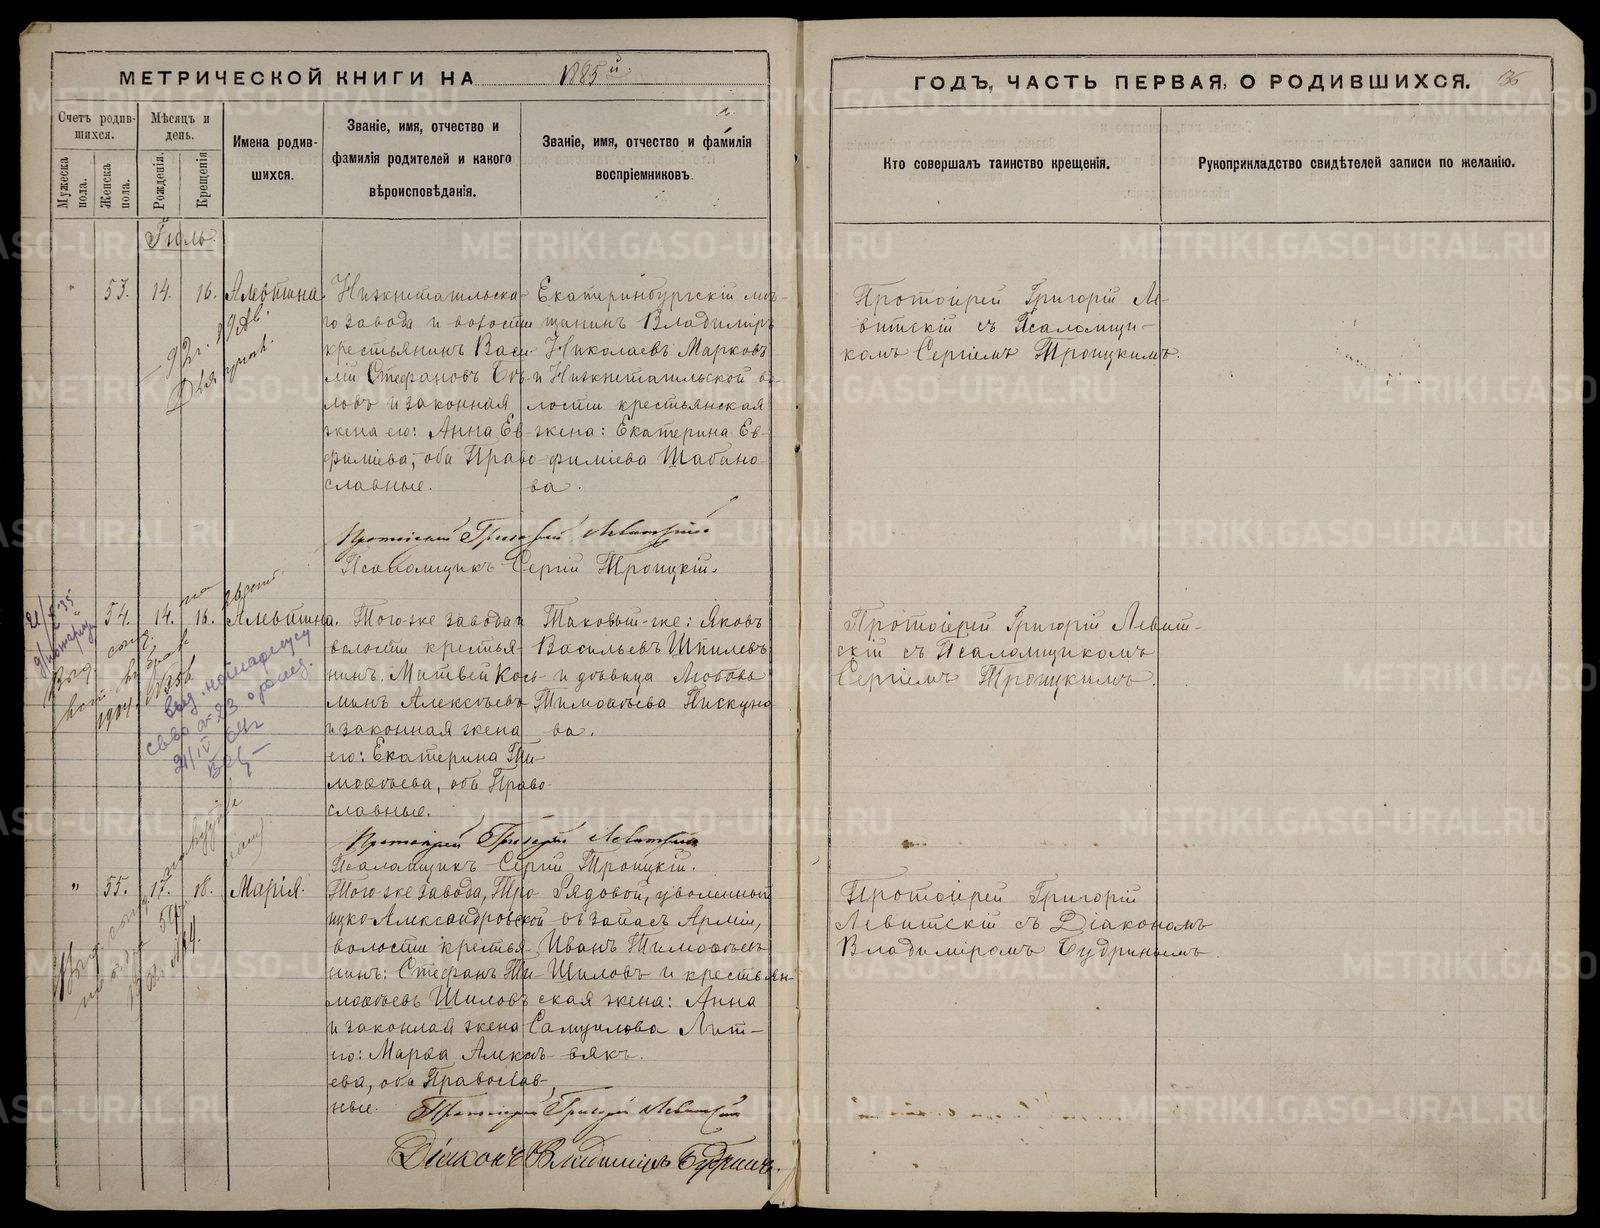 МЕТРИЧЕСКОЙ КНИГИ НА 1885й
ГОДЪ, ЧАСТЬ ПЕРВАЯ, О РОДИВШИХСЯ. 36
Счетъ родив-
шихся.
Мужеска
пола.
Женска
пола.
Мѣсяцъ и
день.
Рожденія.
Крещенія
Имена родив-
шихся.
Званіе, имя, отчество и
фамилія родителей и какого
вѣроисповѣданія.
Званіе, имя, отчество и фамилія
воспріемниковъ.
Кто совершалъ таинство крещенія.
Рукоприкладство свидѣтелей записи по желанію.
Іюль.
" 53. 14. 16. Алевтина.
Нижнетагильска-
го завода и волости
крестьянинъ Васи
лій Стефановъ Бѣ-
ловъ и законная
жена его: Анна Ев-
фиміева, оба Право-
славные.
Екатеринбургскій мѣ-
щанинъ Владиміръ
Николаевъ Марковъ
и Нижнетагильской во-
лости крестьянская
жена: Екатерина Ев-
фиміева Шабано-
ва.
Протоіерей Григорій Ле-
витскій съ Псаломщи-
комъ Сергіемъ Троицкимъ.
Протоіерей Григорій Левитскій.
Псаломщикъ Сергій Троицкій.
" 54. 14. 16. Алевтина.
Того-же завода и
волости крестья-
нинъ Матвей Кось-
минъ Алексѣевъ
и законная жена
его: Екатерина Ти-
моѳѣева, оба Право-
славные.
Таковый-же: Яковъ
Васильевъ Шпилевъ
и дѣвица Любовь
Тимоѳѣева Пискуно
ва.
Протоіерей Григорій Левит-
скій съ Псаломщикомъ
Сергіемъ Троицкимъ.
Протоіерей Григорій Левитскій
Псаломщикъ Сергій Троицкій.
" 55. 17. 18. Марія.
Того-же завода, Тро-
ицко Александровской
волости крестья-
нинъ: Стефанъ Ти-
моѳѣевъ Шиловъ
и законная жена
его: Марѳа Алексѣ-
ева, оба Православ-
ные.
Рядовой, уволенный
въ запасъ Арміи,
Иванъ Тимоѳѣевъ
Шиловъ и крестьян-
ская жена: Анна
Самуилова Лит-
вякъ.
Протоіерей Григорій
Левитскій съ Діакономъ
Владиміромъ Будринымъ.
Протоіерей Григорій Левитскій
Діаконъ Владиміръ Будринъ.
METRIKI.GASO-URAL.RU